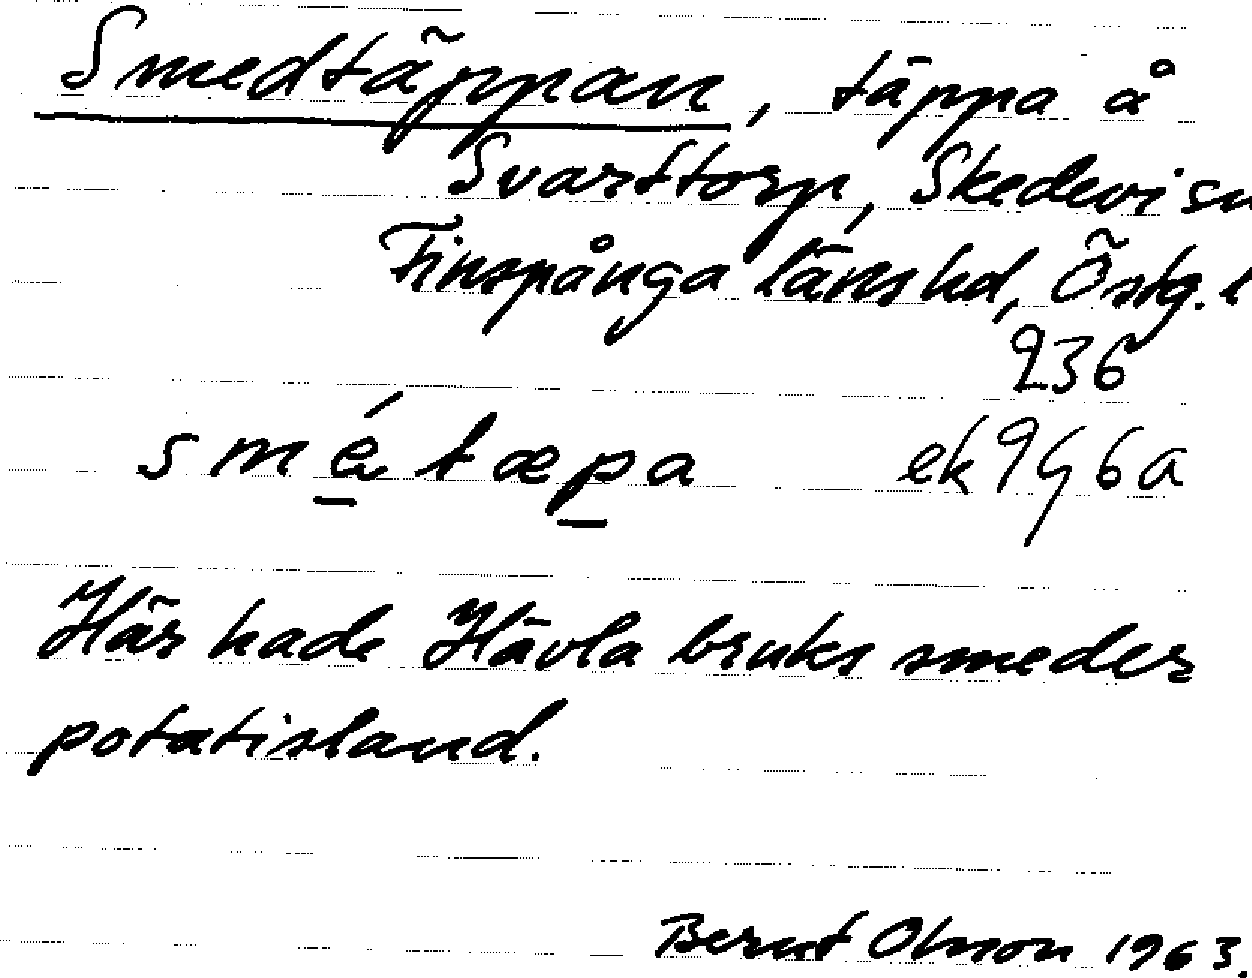 Smedtäppan, täppa å
Svarttorp, Skedevi sn
Finspånga länshd, Östg. l
236
smétæpa ek 946a
Här hade Hävla bruks smeder
potatisland.
Bernt Olsson 1963.